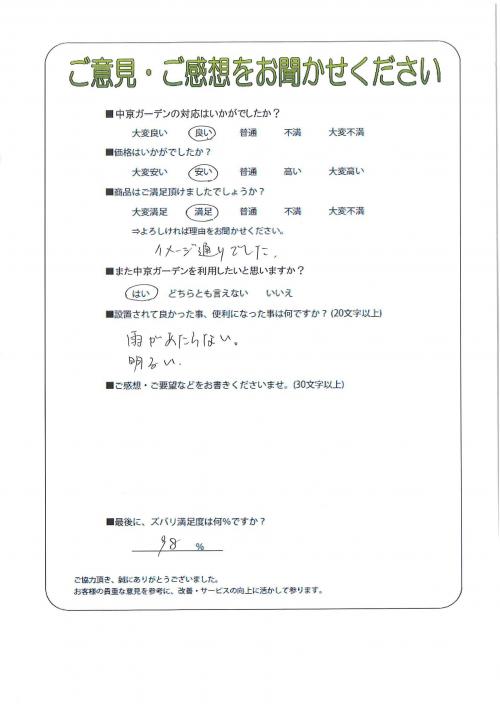 ご意見・ご感想をお聞かせください
■中京ガーデンの対応はいかがでしたか？
大変良い 良い 普通 不満 大変不満
■価格はいかがでしたか？
大変安い 安い 普通 高い 大変高い
■商品はご満足頂けましたでしょうか？
大変満足 満足 普通 不満 大変不満
⇒よろしければ理由をお聞かせください。
イメージ通りでした。
■また中京ガーデンを利用したいと思いますか？
はい どちらとも言えない いいえ
■設置されて良かった事、便利になった事は何ですか？(20文字以上)
雨があたらない。
明るい.
■ご感想・ご要望などをお書きくださいませ。(30文字以上)
■最後に、ズバリ満足度は何％ですか？
98 %
ご協力頂き、誠にありがとうございました。
お客様の貴重な意見を参考に、改善・サービスの向上に活かして参ります。